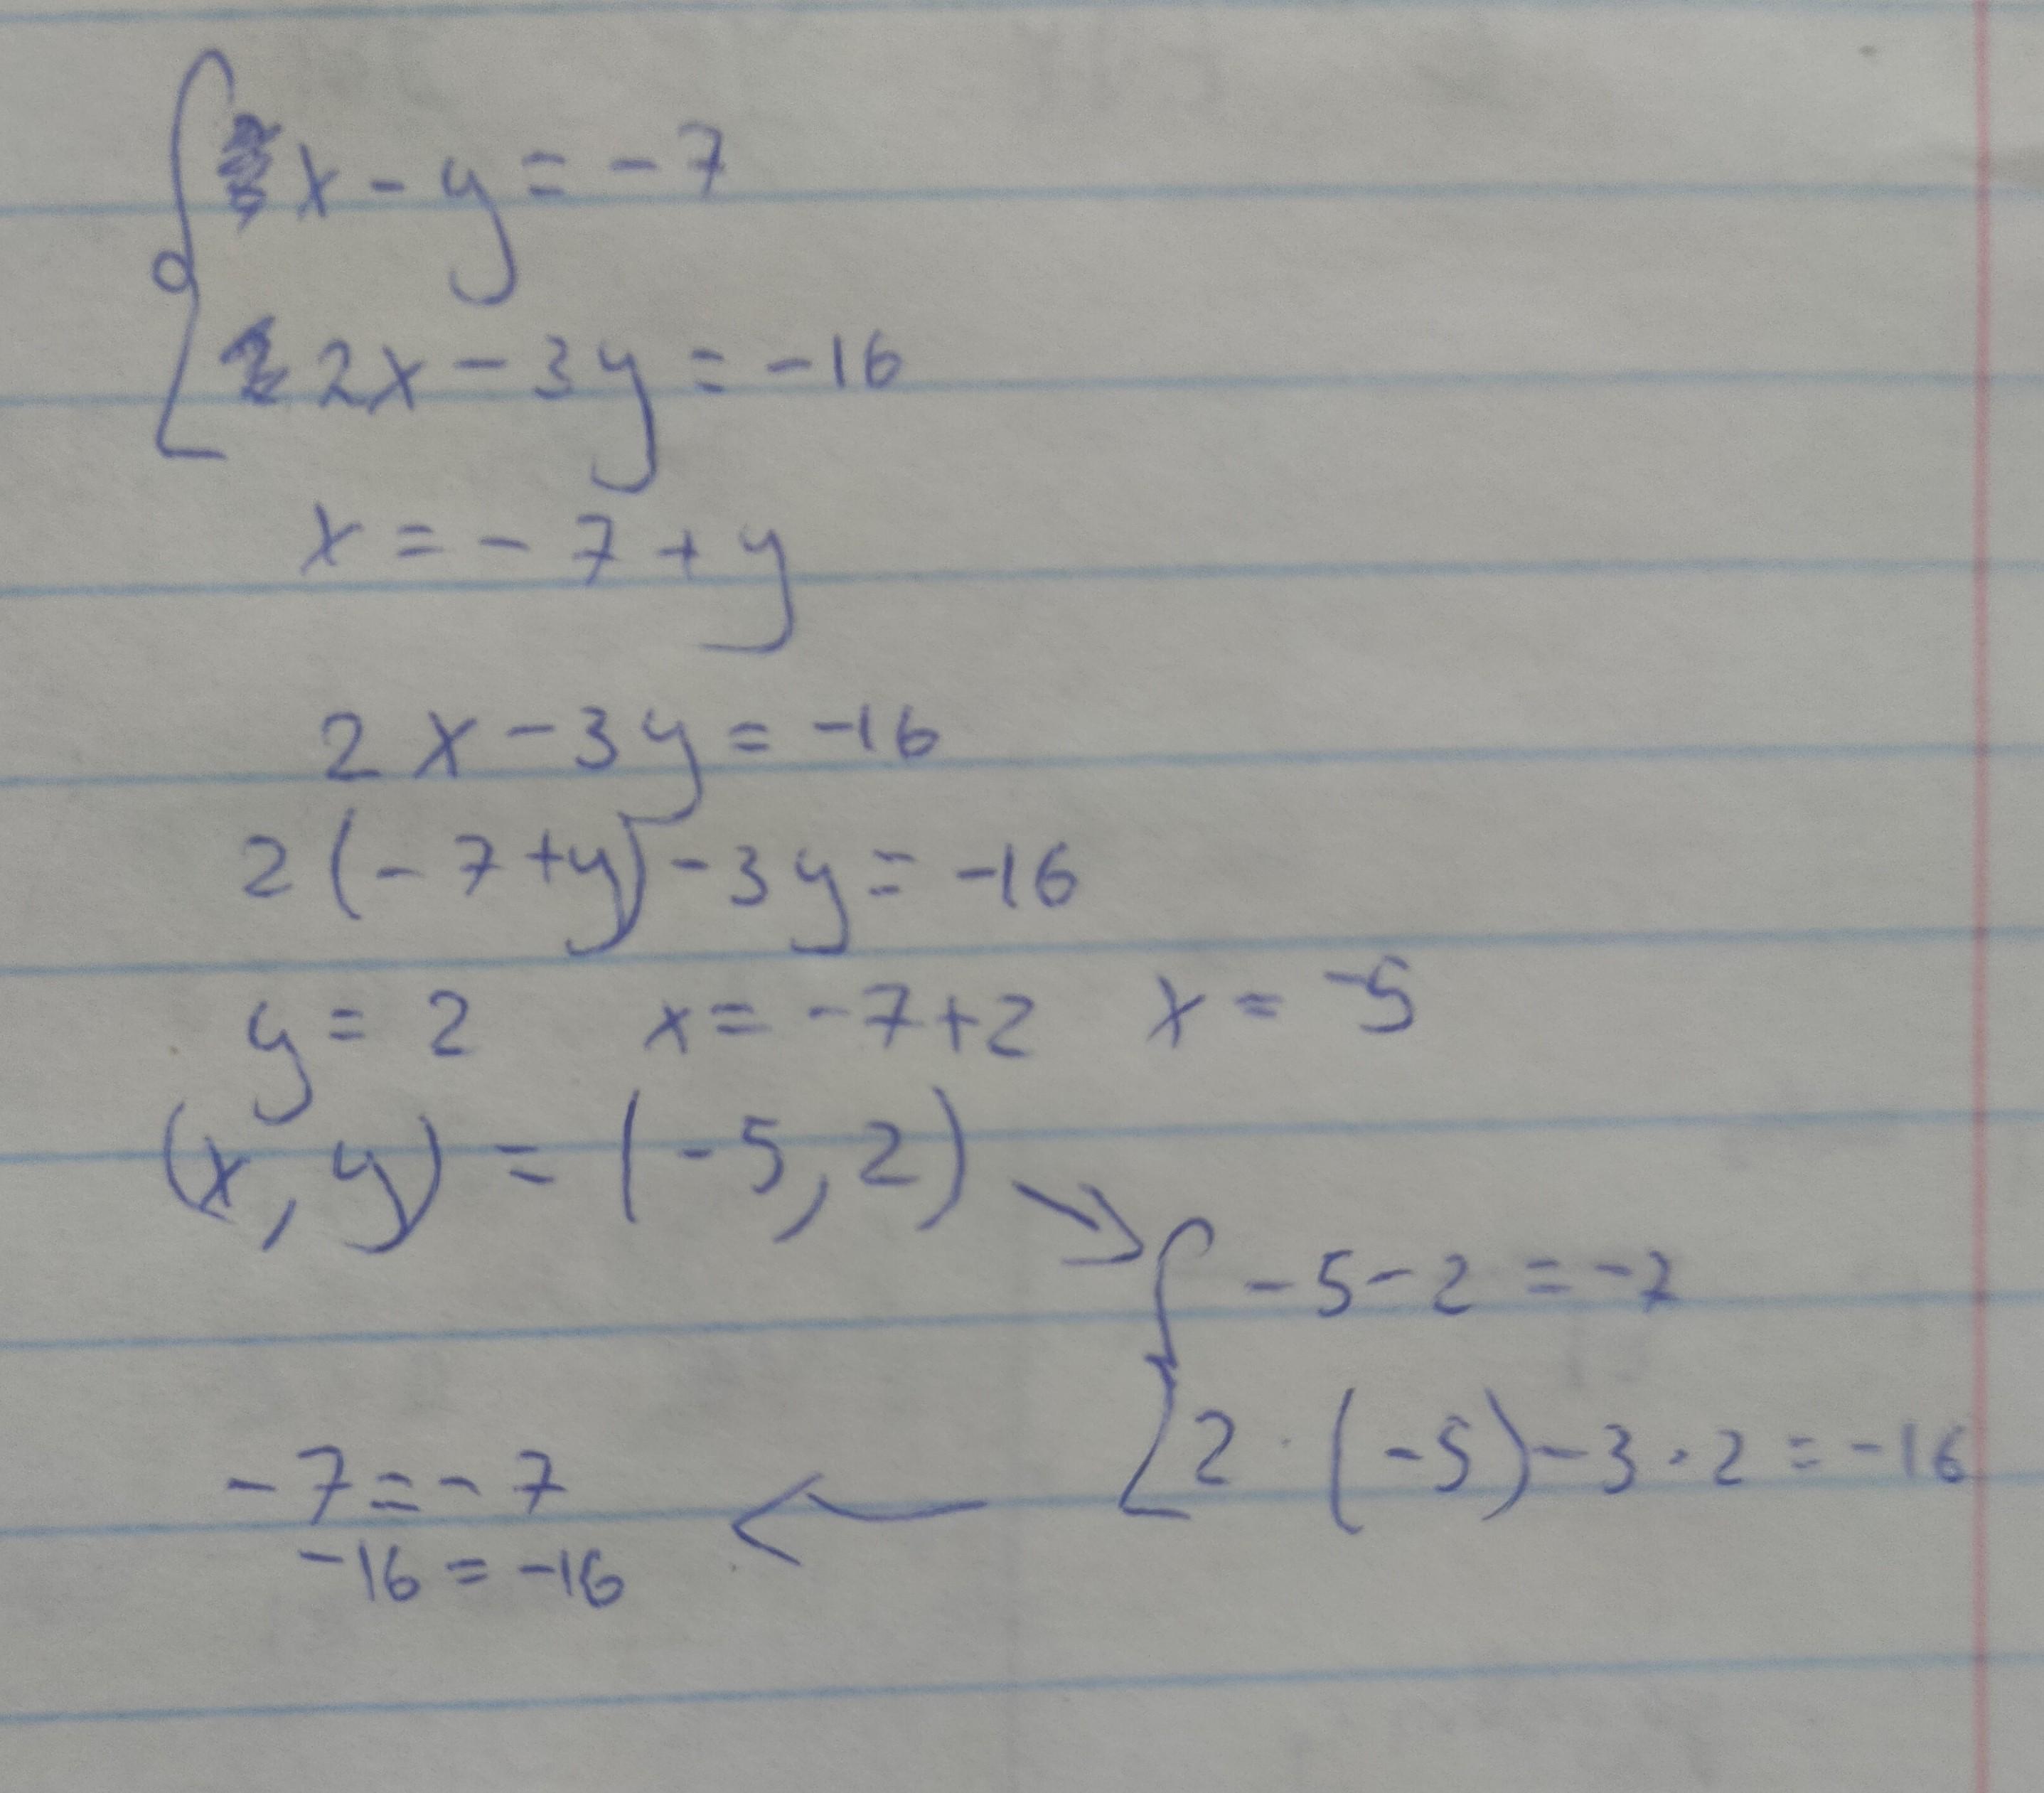 x - y = - 7
2x - 3y = -16
x = - 7 + y
2x - 3y = -16
2(- 7 + y) - 3y = -16
y = 2 x = - 7 + 2 x = -5
(x, y) = (-5, 2)
-5 - 2 = -7
2 · (-5) - 3 · 2 = -16
- 7 = - 7
-16 = -16